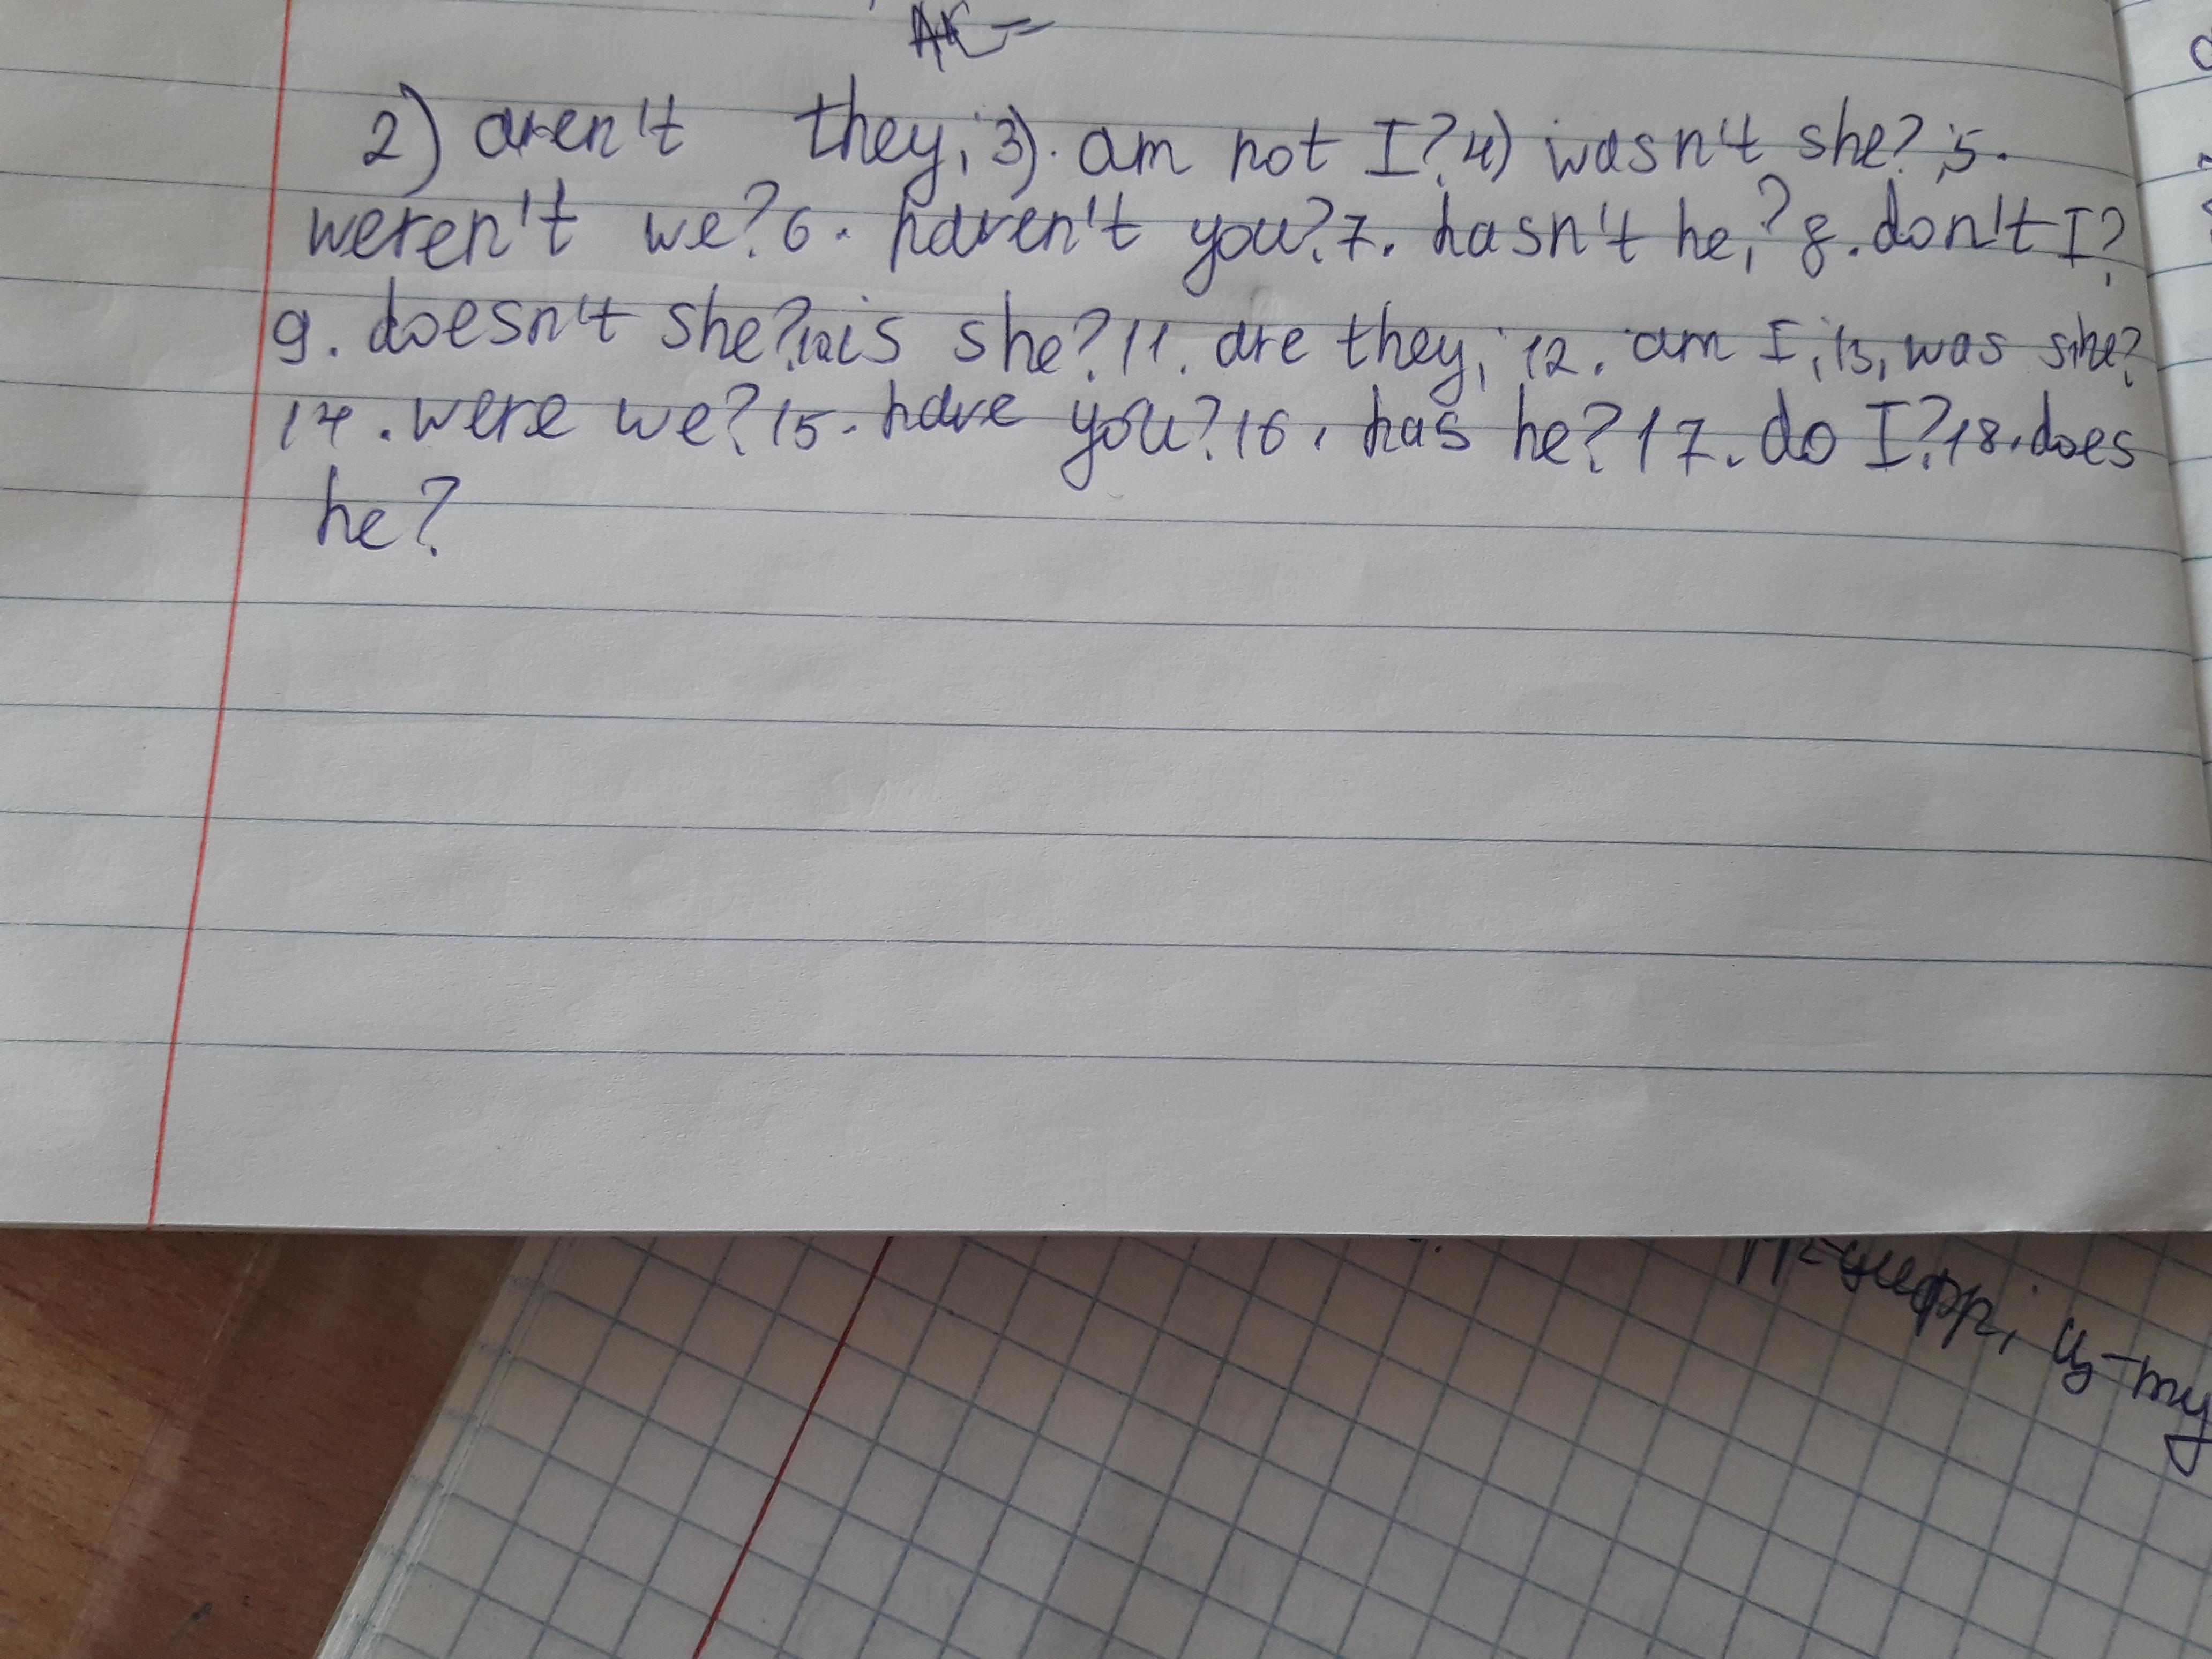 2) aren't they; 3). am not I? 4) wasn't she? ;5.
weren't we? 6. haven't you? 7. hasn't he,? 8. don't I?
9. doesn't she? 10 is she? 11. are they; 12. am I; 13, was she?
14. were we? 15. have you? 16. has he? 17. do I? 18. does
he?